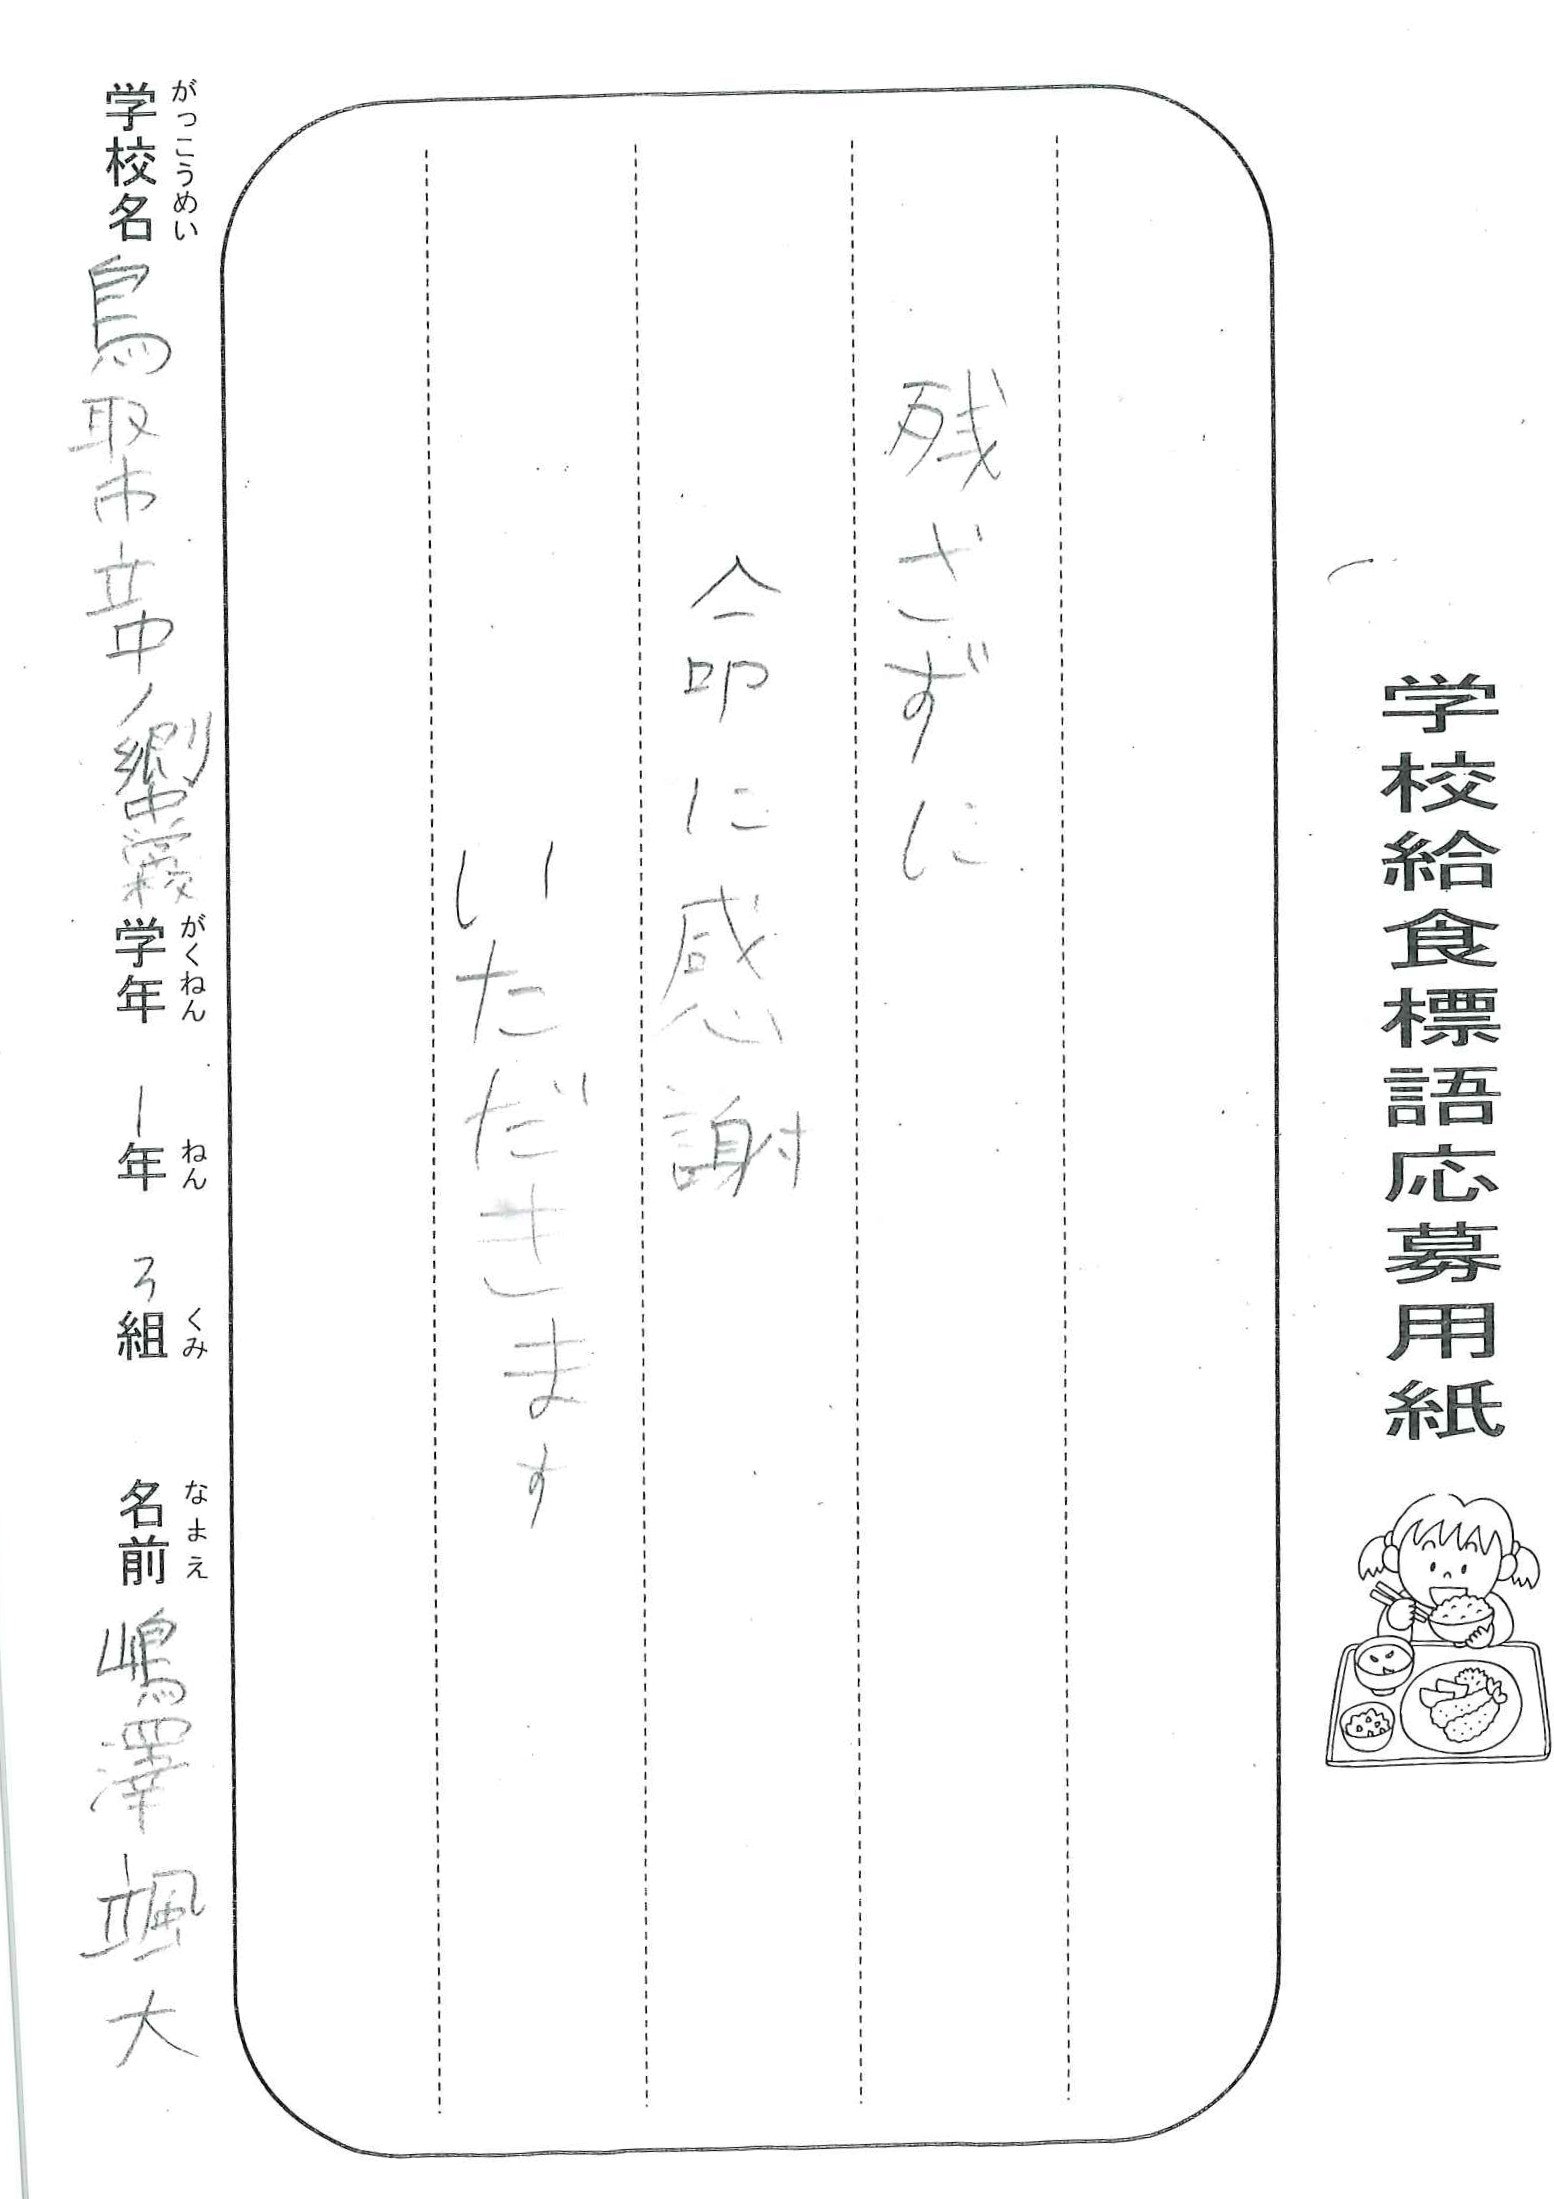 学校給食標語応募用紙
残さずに
命に感謝
いただきます
がっこうめい
学校名 鳥取市立中ノ郷中学校
がくねん
学年
ねん
1年
くみ
3組
なまえ
名前 嶋澤 颯大